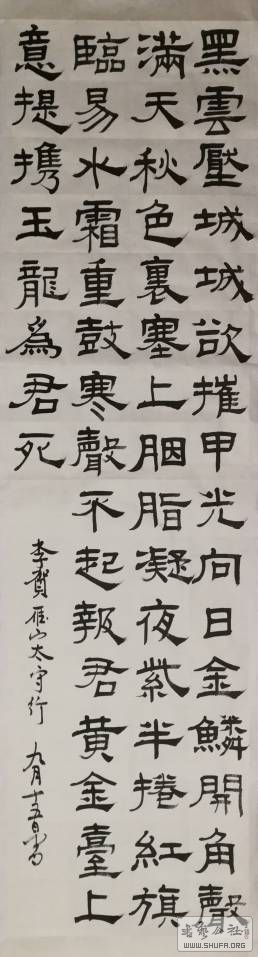 黑雲壓城城欲摧甲光向日金鱗開角聲
滿天秋色裏塞上胭脂凝夜紫半捲紅旗
臨易水霜重鼓寒聲不起報君黃金臺上
意提携玉龍爲君死
李賀雁门太守行 九月十五日書
书艺公社
WWW.SHUFA.ORG